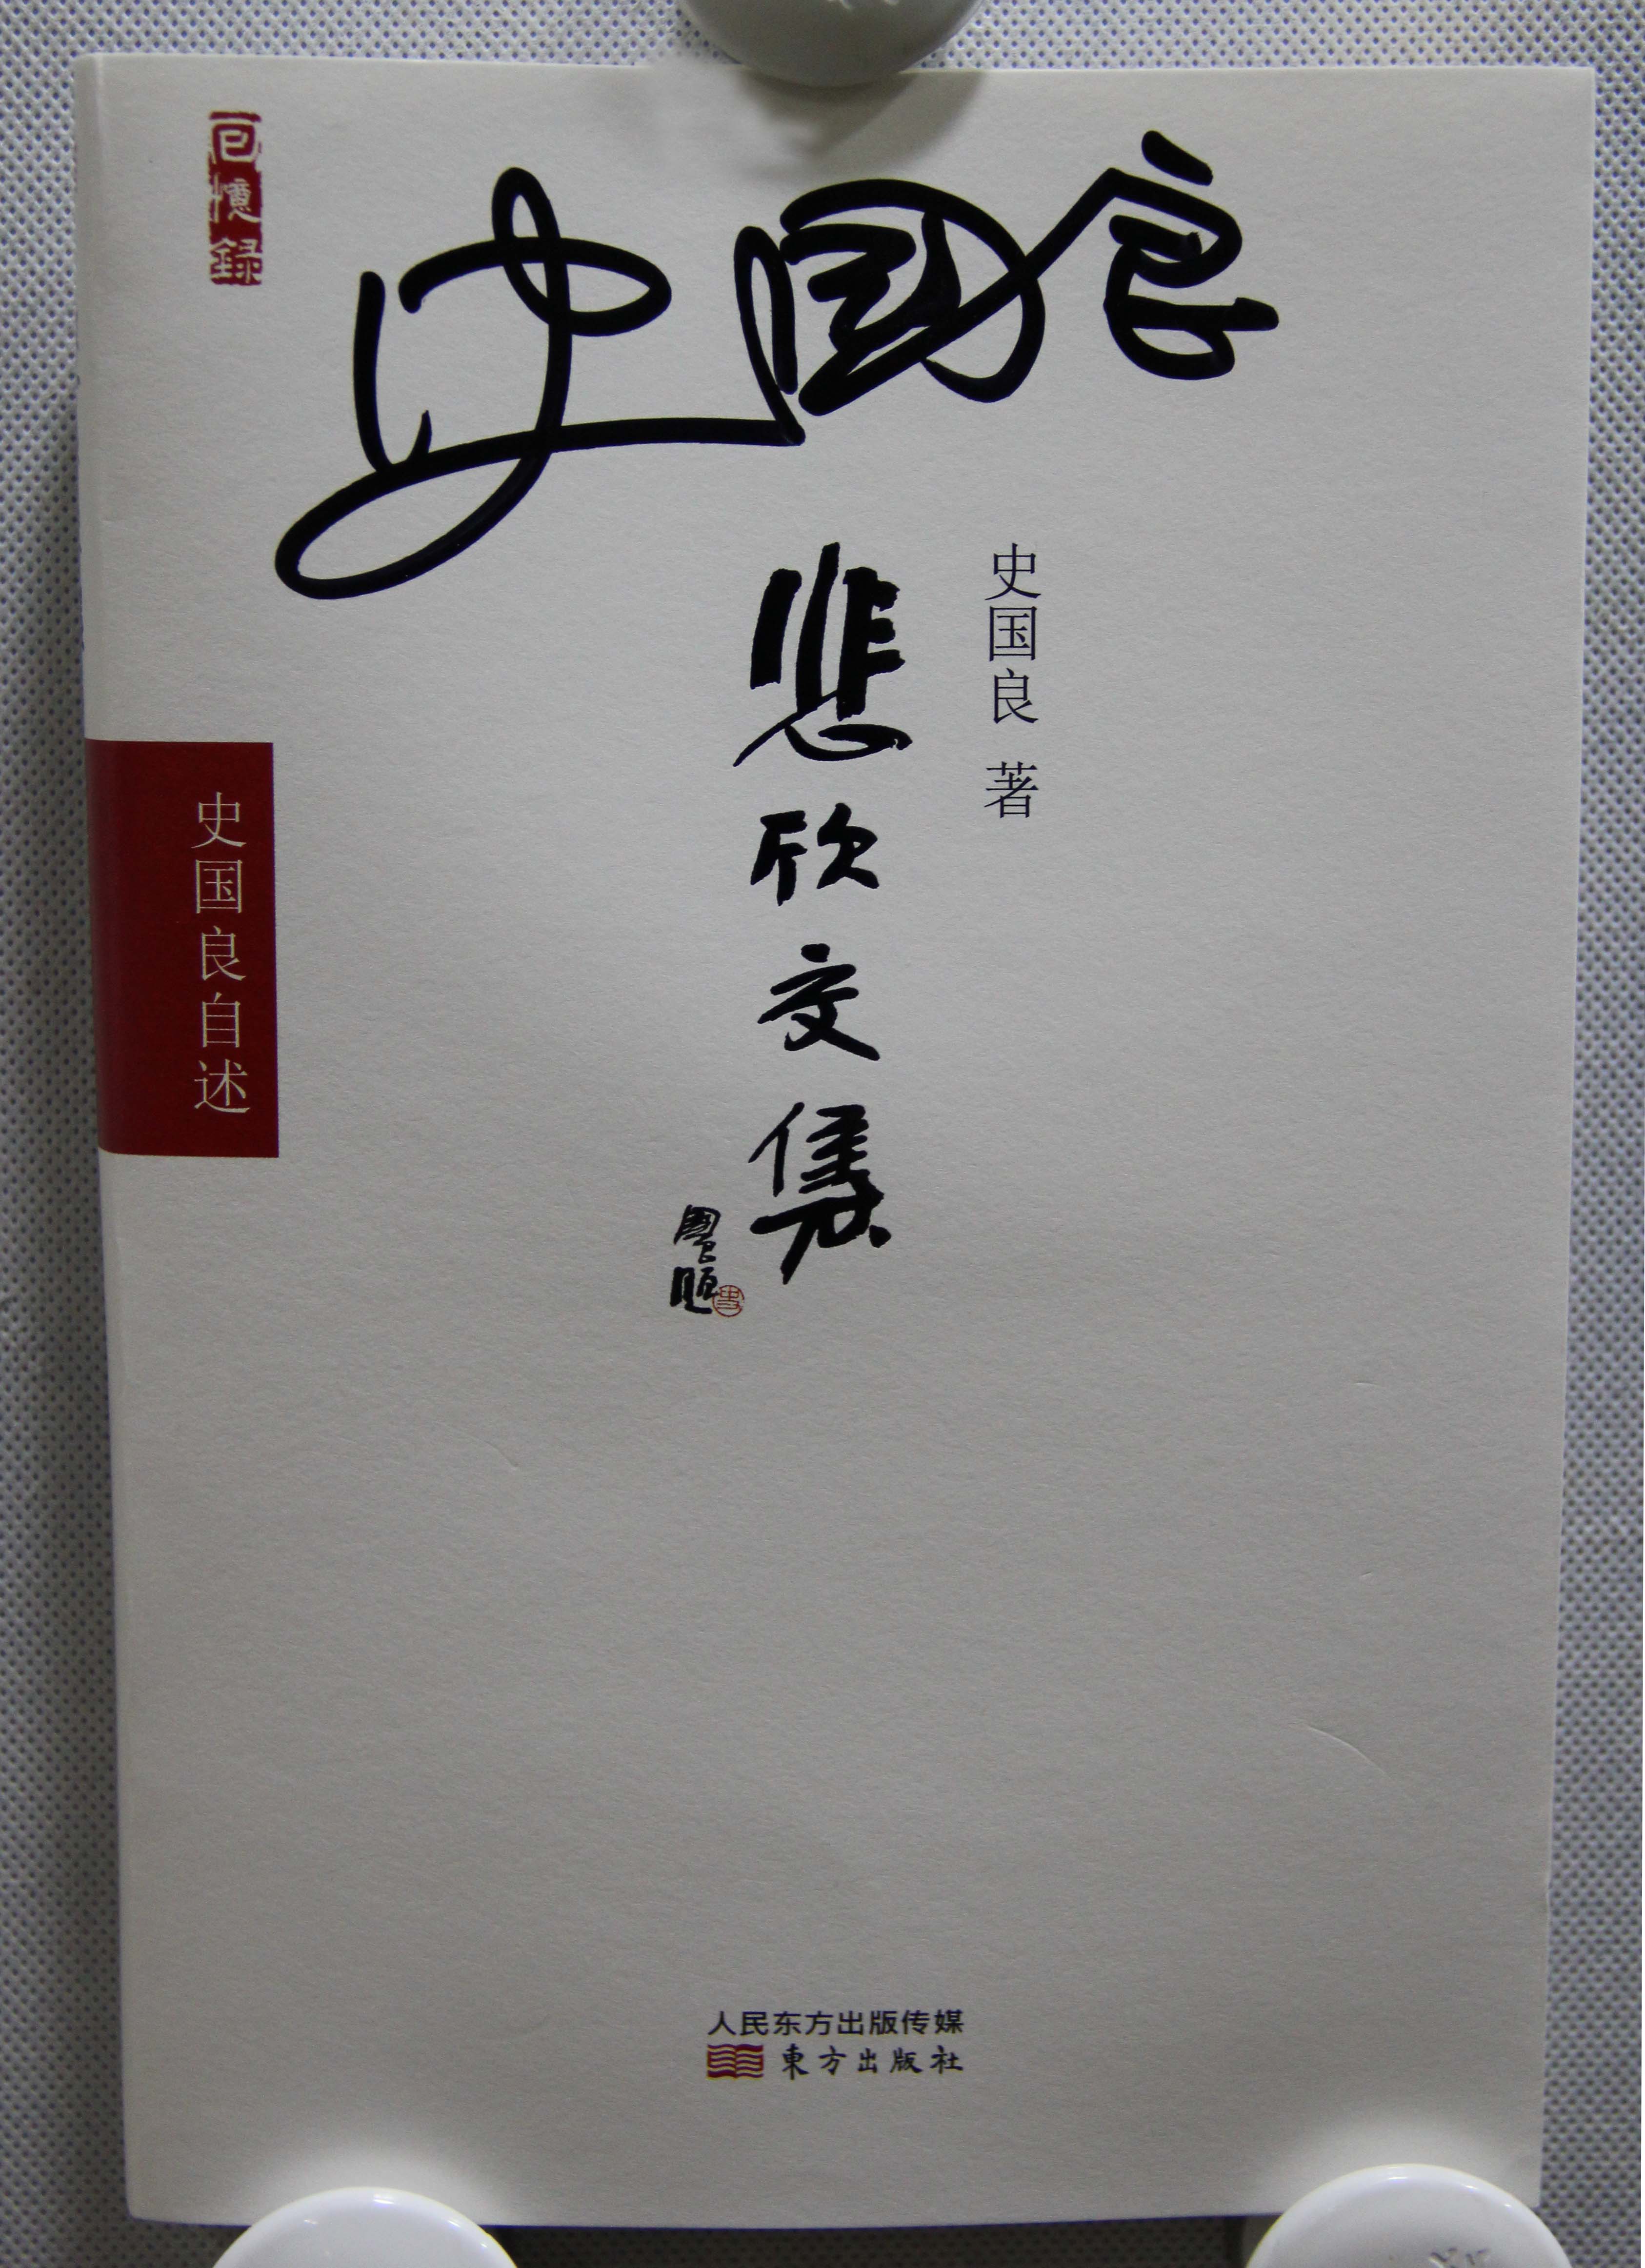 回憶録
史國良
史国良 著
悲欣交集
國良題
史
史国良自述
人民东方出版传媒
東方出版社